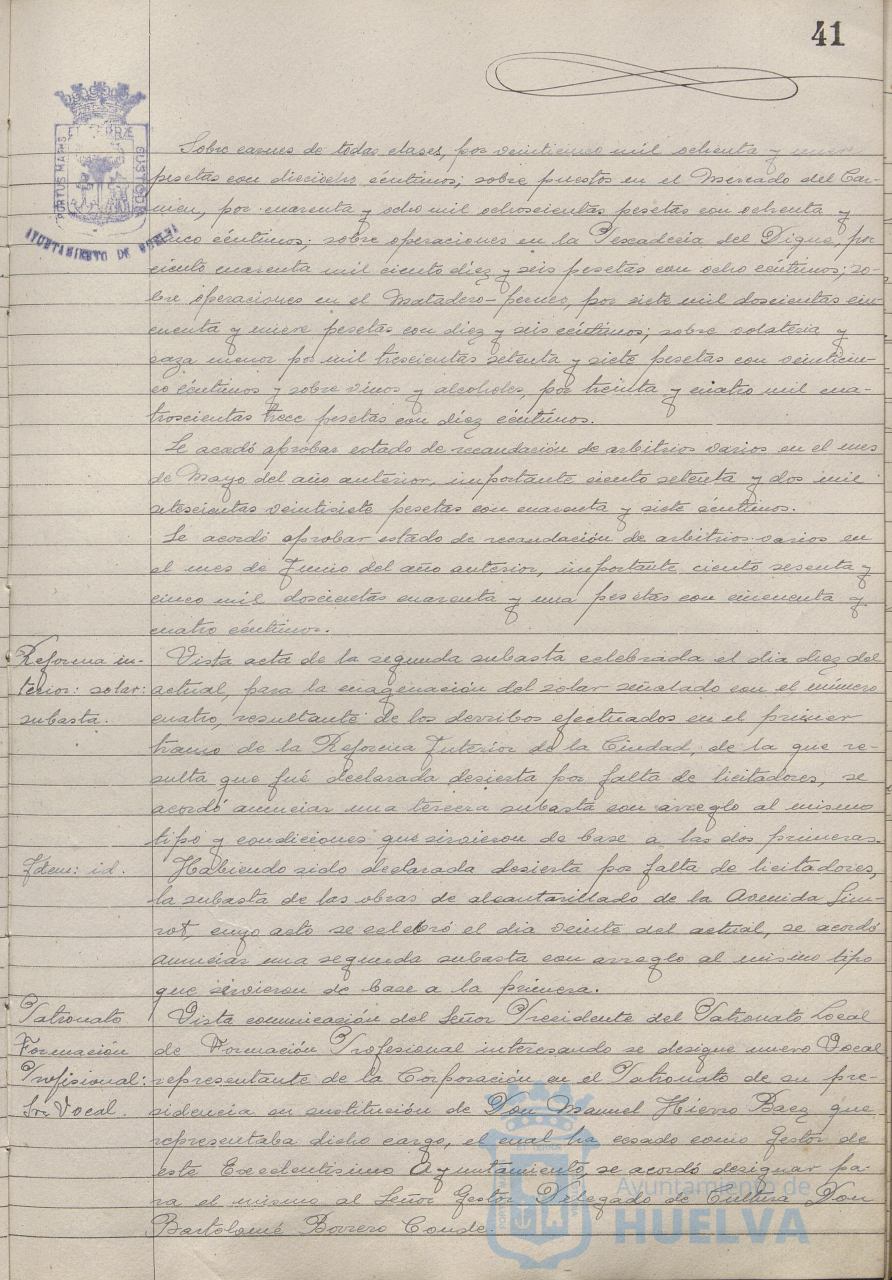 41
PORTUS MARIS
ET TERRÆ
CUSTODIA
AYUNTAMIENTO DE HUELVA
Sobre carnes de todas clases, por veinticinco mil ochenta y nueve
pesetas con dieciocho céntimos; sobre puestos en el Mercado del Car-
men, por cuarenta y ocho mil ochoscientas pesetas con ochenta y
cinco céntimos; sobre operaciones en la Pescadería del Dique, por
ciento cuarenta mil ciento diez y seis pesetas con ocho céntimos; so-
bre operaciones en el Matadero-porcuno, por siete mil doscientas cin-
cuenta y nueve pesetas con diez y seis céntimos; sobre volatería y
caza menor por mil trescientas setenta y siete pesetas con veinticin-
co céntimos y sobre vinos y alcoholes, por treinta y cuatro mil cua-
troscientas trece pesetas con diez céntimos.
Se acodó aprobar estado de recaudación de arbitrios varios en el mes
de Mayo del año anterior, importante ciento setenta y dos mil
setescientas veintisiete pesetas con cuarenta y siete céntimos.
Se acordó aprobar estado de recaudación de arbitrios varios en
el mes de Junio del año anterior, importante ciento sesenta y
cinco mil doscientas cuarenta y una pesetas con cincuenta y
cuatro céntimos.
Reforma in-
terior: solar:
subasta.
Vista acta de la segunda subasta celebrada el dia diez del
actual, para la enagenación del solar señalado con el número
cuatro, resultante de los derribos efectuados en el primer
tramo de la Reforma Interior de la Ciudad, de la que re-
sulta que fué declarada desierta por falta de licitadores, se
acordó anunciar una tercera subasta con arreglo al mismo
tipo y condiciones que sirvieron de base a las dos primeras.
Idem: id.
Habiendo sido declarada desierta por falta de licitadores,
la subasta de las obras de alcantarillado de la Avenida Sun-
rot, cuyo acto se celebró el dia veinte del actual, se acordó
anunciar una segunda subasta con arreglo al mismo tipo
que sirvieron de base a la primera.
Patronato
Formación
Profisional:
Sr. Vocal.
Vista comunicación del Señor Presidente del Patronato Local
de Formación Profesional interesando se designe nuevo Vocal
representante de la Corporación en el Patronato de su pre-
sidencia en sustitución de Don Manuel Hierro Baez que
representaba dicho cargo, el cual ha cesado como Gestor de
este Excelentisimo Ayuntamiento, se acordó designar pa-
ra el mismo al Señor Gestor Delegado de Cultura Don
Bartolomé Borrero Conde.
Ayuntamiento de
HUELVA